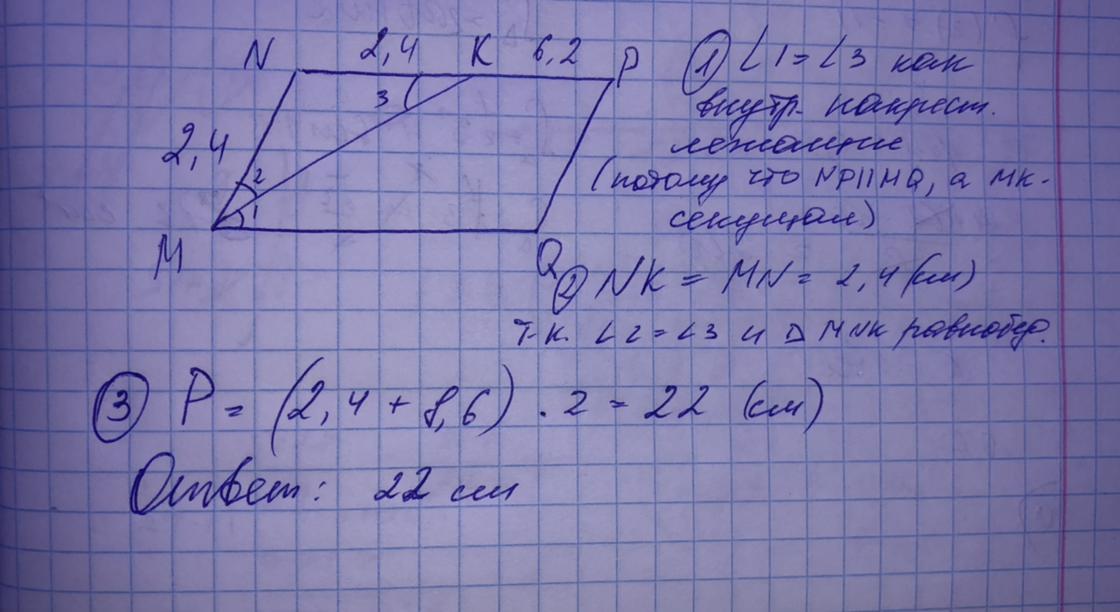 N 2,4 K 6,2 P
3
2,4
2
1
M
Q
① ∠1=∠3 как
внутр. накрест.
лежащие
(потому что NP||MQ, а MK-
секущая)
② NK = MN = 2,4 (см)
т.к. ∠2=∠3 и Δ MNK равнобед.
③ P = (2,4 + 8,6) · 2 = 22 (см)
Ответ: 22 см